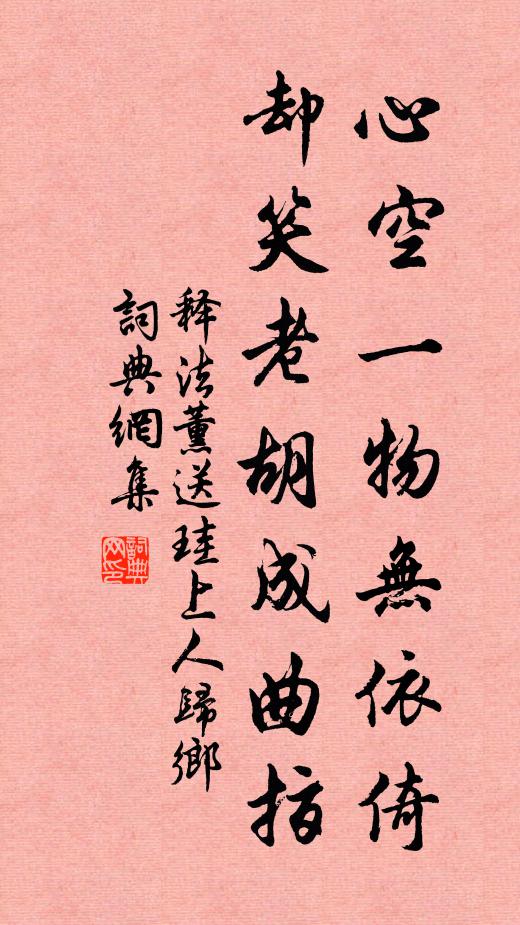 心空一物無依倚
却笑老胡成曲指
释法薰送珪上人歸鄉
詞典網集
詞典網印